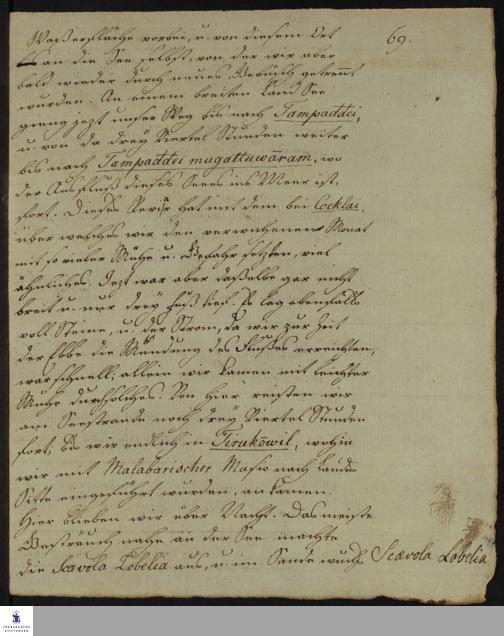 69.
Waßerfläche vorbei, u. von diesem Ort
an die See selbst, von der wir aber
bald wieder durch neues Gebüsch getrennt
wurden. An einem breiten Land See
gieng jezt unser Weg bis nach Tampaddei,
u. von da drey Viertel Stunden weiter
bis nach Tampaddei mugattuwāram, wo
der Ausfluß dieses Sees ins Meer ist,
fort. Dieses Revier hat mit dem bei Cocklai,
über welches wir den verwichenen Monat
mit so vieler Mühe u. Gefahr setzten, viel
ähnliches. Jezt war aber daßelbe gar nicht
breit u. nur drey Fuß tief. Es lag ebenfalls
voll Steine, u. der Strom, da wir zur Zeit
der Ebbe die Mündung des Flußes erreichten,
war schnell; allein wir kamen mit leichter
Mühe durch solches. Von hier reisten wir
am Seestrande noch drey Viertel Stunden
fort, bis wir endlich in Tirukōwil, wohin
wir mit Malabarischer Music nach Landes
Sitte eingeführt wurden, an kamen.
Hier blieben wir über Nacht. Das meiste
Gesträuch nahe an der See machte
die Scævola Lobelia aus, u. im Sande wuchs Scævola Lobelia
FRANCKESCHE
STIFTUNGEN